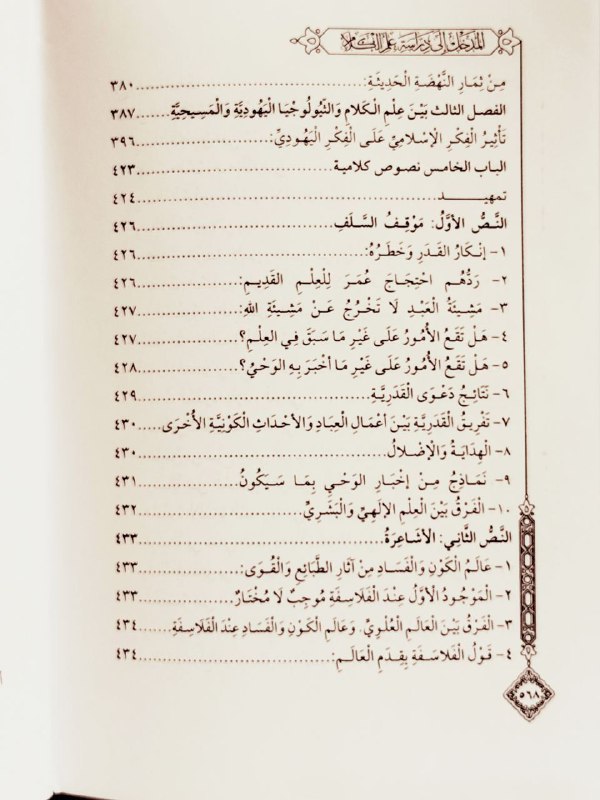 المدخل إلى دراسة علم الكلام
مِنْ ثِمَارِ النَّهْضَةِ الْحَدِيثَةِ:................................٣٨٠
الفصل الثالث بَيْنَ عِلْمِ الْكَلَامِ وَالثِّيُولُوجْيَا الْيَهُودِيَّةِ وَالْمَسِيحِيَّةِ....٣٨٧
تَأْثِيرُ الْفِكْرِ الْإِسْلَامِيِّ عَلَى الْفِكْرِ الْيَهُودِيِّ:................٣٩٦
الباب الخامس نصوص كلامية................................٤٢٣
تمهيــــد................................٤٢٤
النَّصُّ الْأَوَّلُ: مَوْقِفُ السَّلَفِ................................٤٢٦
١- إِنْكَارُ الْقَدَرِ وَخَطَرُهُ:................................٤٢٦
٢- رَدُّهُم احْتِجَاجَ عُمَرَ لِلْعِلْمِ الْقَدِيمِ:................٤٢٦
٣- مَشِيئَةُ الْعَبْدِ لَا تَخْرُجُ عَنْ مَشِيئَةِ اللهِ:................٤٢٧
٤- هَلْ تَقَعُ الْأُمُورُ عَلَى غَيْرِ مَا سَبَقَ فِي الْعِلْمِ؟................٤٢٧
٥- هَلْ تَقَعُ الْأُمُورُ عَلَى غَيْرِ مَا أَخْبَرَ بِهِ الْوَحْيُ؟................٤٢٨
٦- نَتَائِجُ دَعْوَى الْقَدَرِيَّةِ................................٤٢٩
٧- تَفْرِيقُ الْقَدَرِيَّةِ بَيْنَ أَعْمَالِ الْعِبَادِ وَالْأَحْدَاثِ الْكَوْنِيَّةِ الْأُخْرَى.....٤٣٠
٨- الْهِدَايَةُ وَالْإِضْلَالُ................................٤٣٠
٩- نَمَاذِجُ مِنْ إِخْبَارِ الْوَحْيِ بِمَا سَيَكُونُ................٤٣١
١٠- الْفَرْقُ بَيْنَ الْعِلْمِ الْإِلَهِيِّ وَالْبَشَرِيِّ................٤٣٢
النَّصُّ الثَّانِي: الْأَشَاعِرَةُ................................٤٣٣
١- عَالَمُ الْكَوْنِ وَالْفَسَادِ مِنْ آثَارِ الطَّبَائِعِ وَالْقُوَى:................٤٣٣
٢- الْمَوْجُودُ الْأَوَّلُ عِنْدَ الْفَلَاسِفَةِ مُوجِبٌ لَا مُخْتَارٌ................٤٣٣
٣- الْفَرْقُ بَيْنَ الْعَالَمِ الْعُلْوِيِّ. وَعَالَمِ الْكَوْنِ وَالْفَسَادِ عِنْدَ الْفَلَاسِفَةِ.....٤٣٤
٤- قَوْلُ الْفَلَاسِفَةِ بِقِدَمِ الْعَالَمِ:................................٤٣٤
٥٦٨